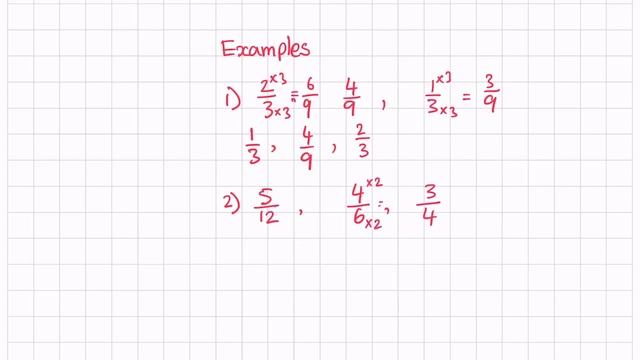 Examples
1) 2/3 ×3 ×3 = 6/9 4/9 , 1/3 ×3 ×3 = 3/9
1/3 , 4/9 , 2/3
2) 5/12 , 4/6 ×2 ×2 = , 3/4